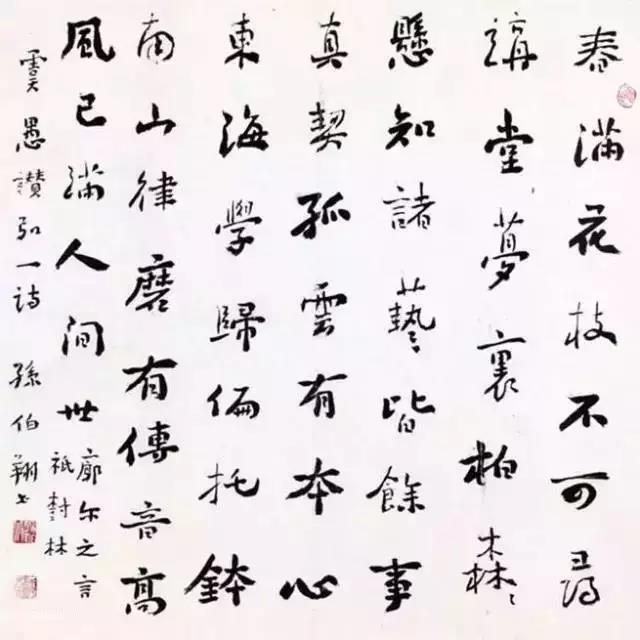 春滿花枝不可尋
講堂夢裏柏森々
懸知諸藝皆餘事
真契孤雲有本心
東海學歸偏托鉢
南山律磨有傳音高
風已滿人间世
廓尔之言
祇對林
虞愚讚弘一诗 孫伯翔书